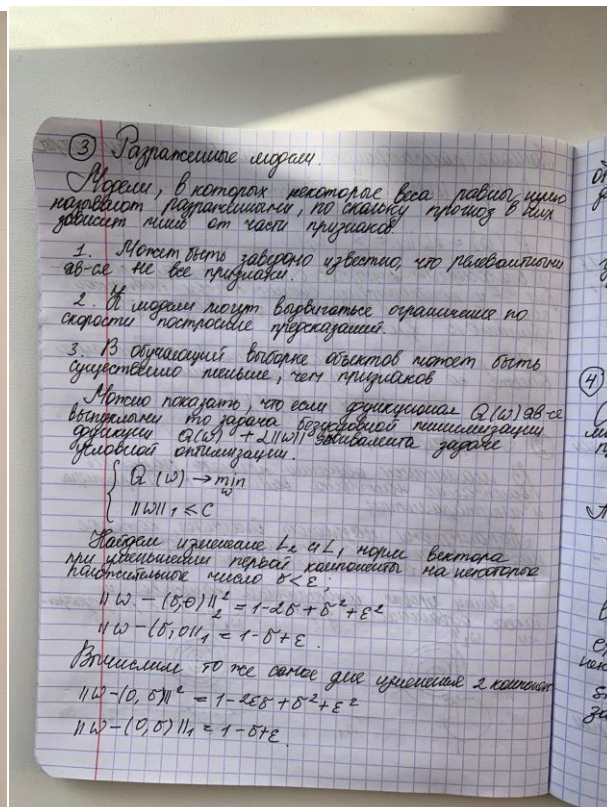 ③ Разраженные модели.
Модели, в которых некоторые веса равны нулю
называют разраженными, по скольку прогноз в них
зависит лишь от части признаков
1. Может быть заведомо известно, что релевантными
яв-ся не все признаки.
2. К модели могут выдвигаться ограничения по
скорости построение предсказаний.
3. В обучающий выборке объектов может быть
существенно меньше, чем признаков
Можно показать, что если функционал Q(ω) яв-ся
выпуклыми то задача безусловной минимизации
функции Q(ω) + λ||ω||₁ эквивалента задаче
условной оптимизации.
{ Q(ω) → min ω
||ω||₁ ≤ C
Найдем изменение L₂ и L₁ норм вектора
при уменьшении первой компоненты на некоторые
положительные число δ < ε;
||ω - (δ,0)||₂² = 1-2δ + δ² + ε²
||ω - (δ,0||₁ = 1-δ+ε.
Вычислим то же самое для изменения 2 компонен
||ω-(0, δ)||² = 1-2εδ + δ² + ε²
||ω-(0,δ)||₁ = 1-δ+ε.
④